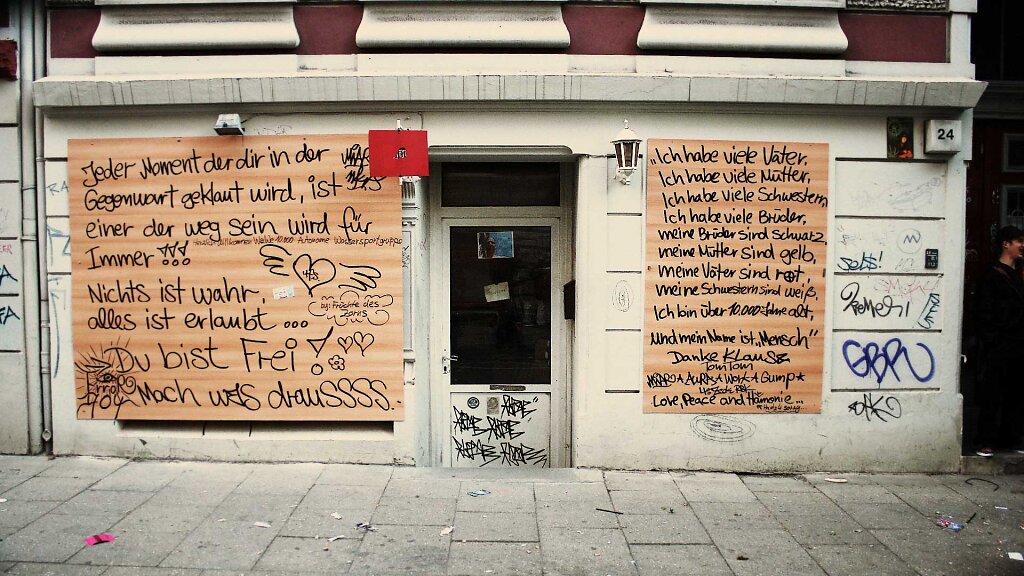 Jeder Moment der dir in der
Gegenwart geklaut wird, ist
einer der weg sein wird für
Herzlich Willkommen Welle 10.000 Autonome Wassersportgruppe
Immer !!!
Nichts ist wahr,
alles ist erlaubt ...
by: Früchte des
Zorns
Du bist Frei!
Mach was draussss.
„Ich habe viele Väter,
Ich habe viele Mütter,
Ich habe viele Schwestern
Ich habe viele Brüder,
meine Brüder sind Schwatz,
meine Mütter sind gelb,
meine Väter sind rot,
meine Schwestern sind weiß,
Ich bin über 10.000 Jahre alt,
und mein Name ist „Mensch"
Danke Klaus
TomTom
Work Gump
Love, Peace and Hamonie...
24